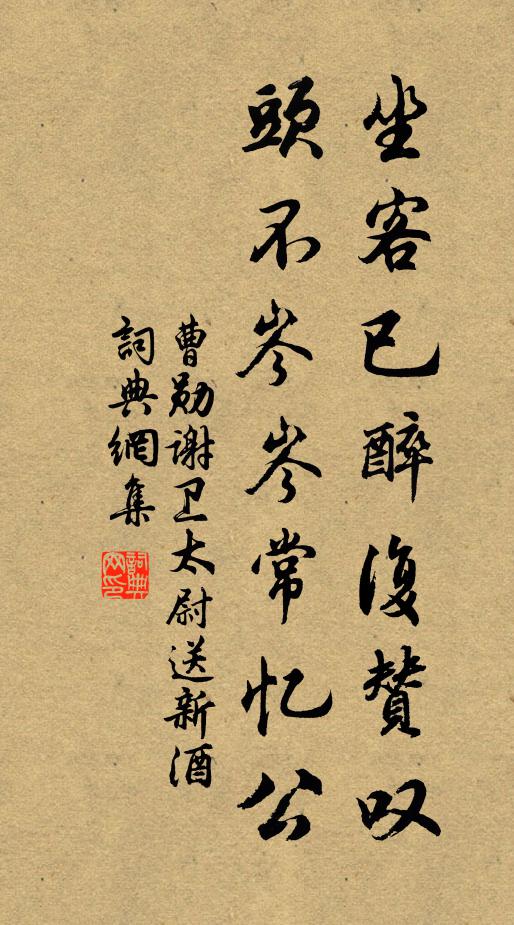 坐客已醉復贊叹
頭不岑岑常忆公
曹勋謝卫太尉送新酒
詞典網集
詞典網印